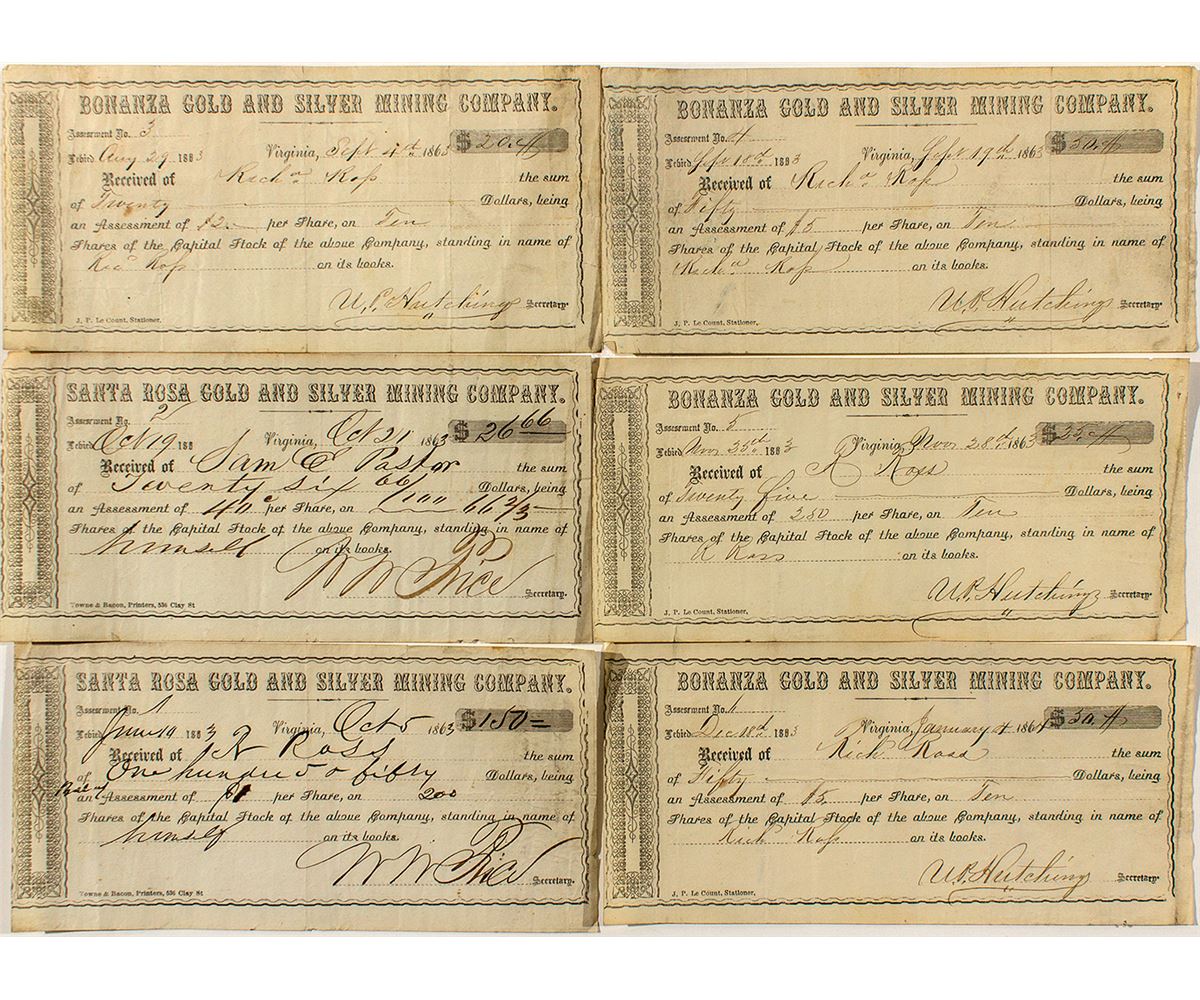 BONANZA GOLD AND SILVER MINING COMPANY.
Assessment No. 3
Levied Aug 29 1863 Virginia, Sept 4th 1863 $20.
Received of Richd Ross the sum
of Twenty Dollars, being
an Assessment of $2 per Share, on Ten
Shares of the Capital Stock of the above Company, standing in name of
Ricd Ross on its books.
U.P. Hutchings Secretary.
J. P. Le Count, Stationer,
BONANZA GOLD AND SILVER MINING COMPANY.
Assessment No. 4
Levied Sept 18th 1863 Virginia, Sept 19th 1863 $50.
Received of Richd Ross the sum
of Fifty Dollars, being
an Assessment of $5 per Share, on Ten
Shares of the Capital Stock of the above Company, standing in name of
Richd Ross on its books.
U.P. Hutchings Secretary.
J. P. Le Count, Stationer,
SANTA ROSA GOLD AND SILVER MINING COMPANY.
Assessment No. 2
Levied Oct 19 186 Virginia, Oct 21 1863 $26 66
Received of Sam E Pastor the sum
of Twenty six 66/100 Dollars, being
an Assessment of 40c per Share, on 66 2/3
Shares of the Capital Stock of the above Company, standing in name of
himself on its books.
W W Price Secretary.
Towne & Bacon, Printers, 536 Clay St
BONANZA GOLD AND SILVER MINING COMPANY.
Assessment No. 5
Levied Nov 25th 1863 Virginia, Nov 28th 1863 $25.
Received of R Ross the sum
of Twenty five Dollars, being
an Assessment of 250 per Share, on Ten
Shares of the Capital Stock of the above Company, standing in name of
R Ross on its books.
U.P. Hutchings Secretary.
J. P. Le Count, Stationer,
SANTA ROSA GOLD AND SILVER MINING COMPANY.
Assessment No. 1
Levied June 19 1863 Virginia, Oct 5 1863 $150
Received of R Ross the sum
of One hundred & fifty Dollars, being
an Assessment of $1 per Share, on 200
Shares of the Capital Stock of the above Company, standing in name of
himself on its books.
W W Price Secretary.
Towne & Bacon, Printers, 536 Clay St
BONANZA GOLD AND SILVER MINING COMPANY.
Assessment No.
Levied Dec 18th 1863 Virginia, January 4 1864 $50.
Received of Rich Ross the sum
of Fifty Dollars, being
an Assessment of $5 per Share, on Ten
Shares of the Capital Stock of the above Company, standing in name of
Rich Ross on its books.
U.P. Hutchings Secretary.
J. P. Le Count, Stationer,